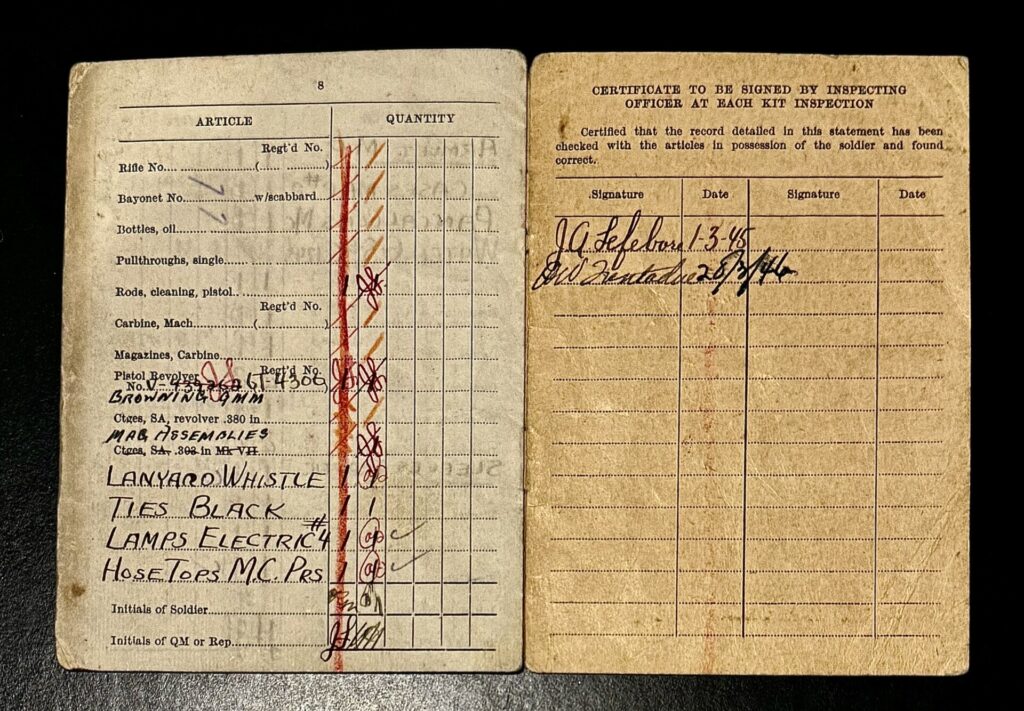 8
ARTICLE QUANTITY
Regt'd No.
Rifle No.... (.... )
Bayonet No. w/scabbard
Bottles, oil
Pullthroughs, single
Rods, cleaning, pistol.. 1
Regt'd No.
Carbine, Mach (.... )
Magazines, Carbine
Pistol Revolver Regt'd No.
No. 6T-4306 1
BROWNING 9MM
Ctges, SA, revolver .380 in
MAG ASSEMBLIES
Ctges, SA- .303 in Mk VII
LANYARD WHISTLE 1 1
TIES BLACK 1 1
LAMPS ELECTRIC #4 1 1
HOSE TOPS M.C. PRS 1 1
Initials of Soldier
Initials of QM or Rep
CERTIFICATE TO BE SIGNED BY INSPECTING
OFFICER AT EACH KIT INSPECTION
Certified that the record detailed in this statement has been
checked with the articles in possession of the soldier and found
correct.
Signature Date Signature Date
J.A. Lefebvre 1-3-45
28/3/46